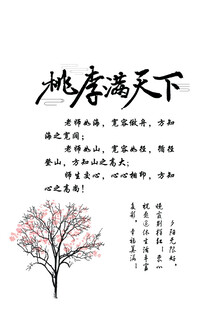 桃李满天下
老师如海，宽容做舟，方知
海之宽阔；
老师如山，宽容如径，循径
登山，方知山之高大；
师生交心，心心相印，方知
心之高尚！
夕阳无限好，
晚霞别样红！衷心
祝愿退休生活丰富
多彩，幸福美满！